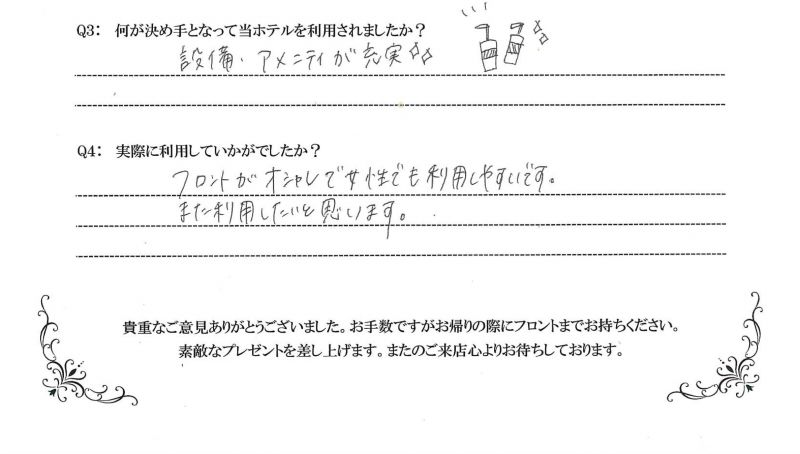 Q3: 何が決め手となって当ホテルを利用されましたか?
設備・アメニティが充実
Q4: 実際に利用していかがでしたか?
フロントがオシャレで女性でも利用しやすいです。
また利用したいと思います。
貴重なご意見ありがとうございました。お手数ですがお帰りの際にフロントまでお持ちください。
素敵なプレゼントを差し上げます。またのご来店心よりお待ちしております。